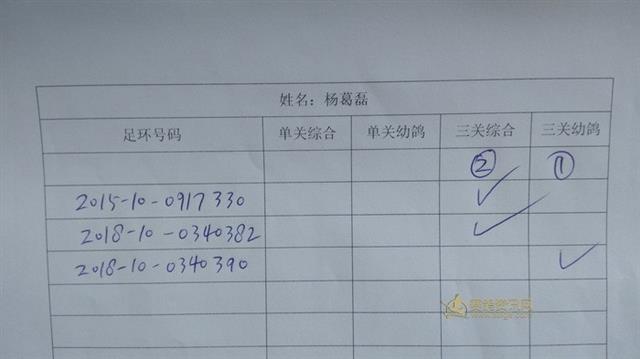 姓名：杨葛磊
足环号码 单关综合 单关幼鸽 三关综合 三关幼鸽
② ①
2015-10-0917330 ✓
2018-10-0340382 ✓
2018-10-0340390 ✓